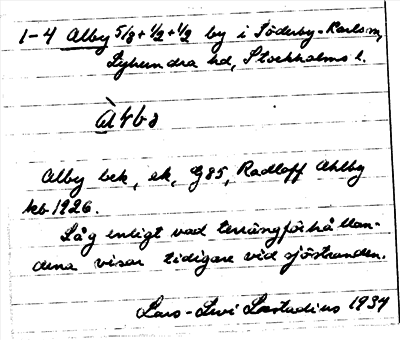 1-4 Alby 5/8+1/2+1/2 by i Söderby-Karls sn,
Lyhundra hd, Stockholms l.
Alby bek, ek, G85, Radloff Ahlby
kb 1926.
Låg enligt vad terrängförhållan-
dena visar tidigare vid sjöstranden.
Lars-Levi Laestadius 1934